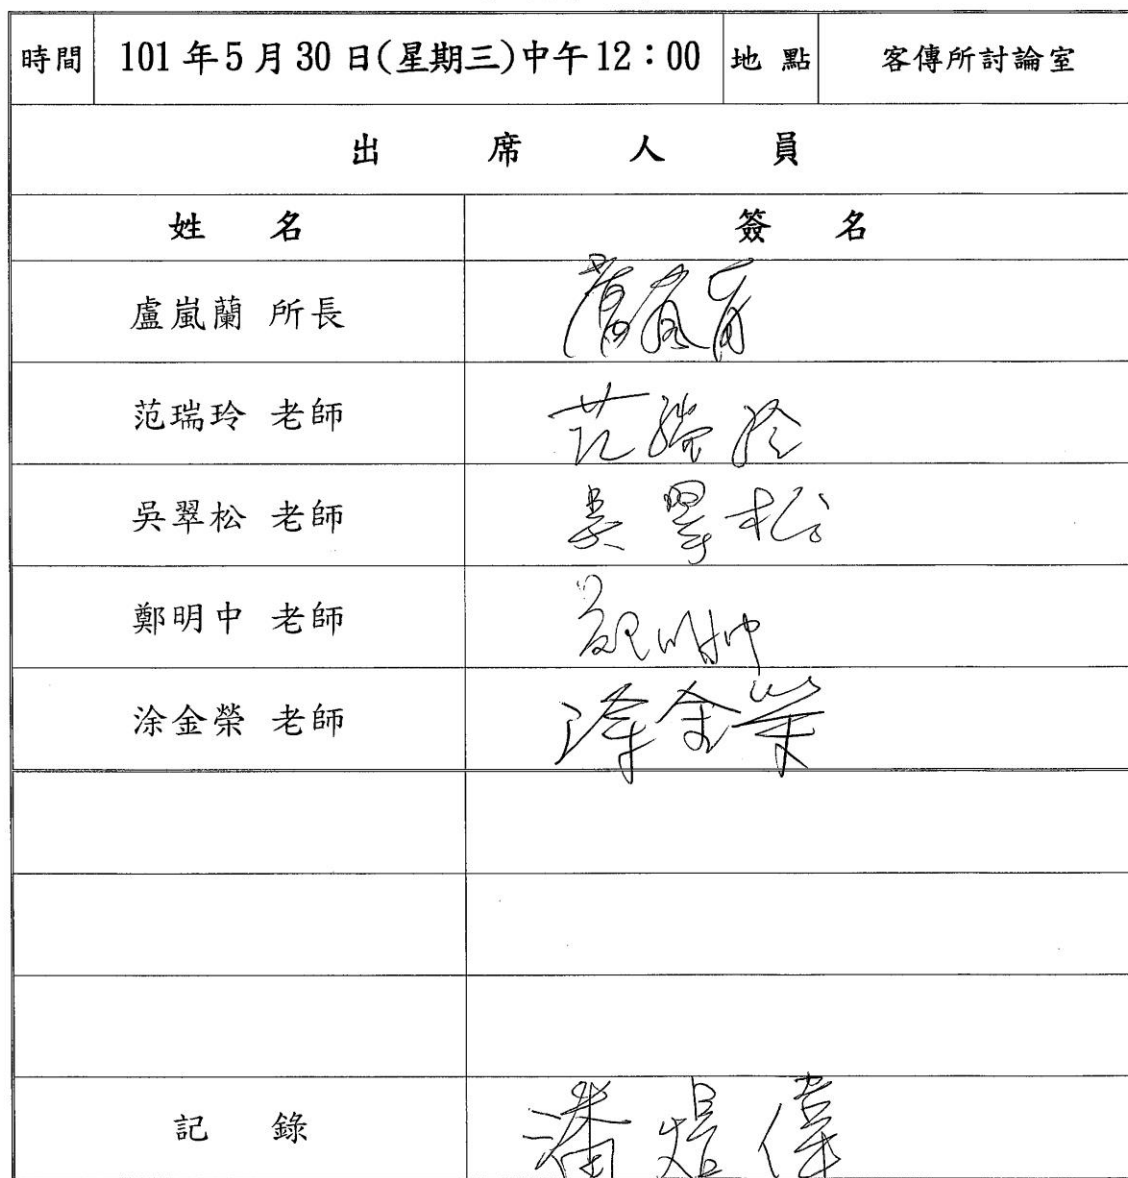 時間 101年5月30日(星期三)中午12：00 地 點 客傳所討論室
出 席 人 員
姓 名 簽 名
盧嵐蘭 所長 盧嵐蘭
范瑞玲 老師 范瑞玲
吳翠松 老師 吳翠松
鄭明中 老師 鄭明中
涂金榮 老師 涂金榮
記 錄 潘煜偉